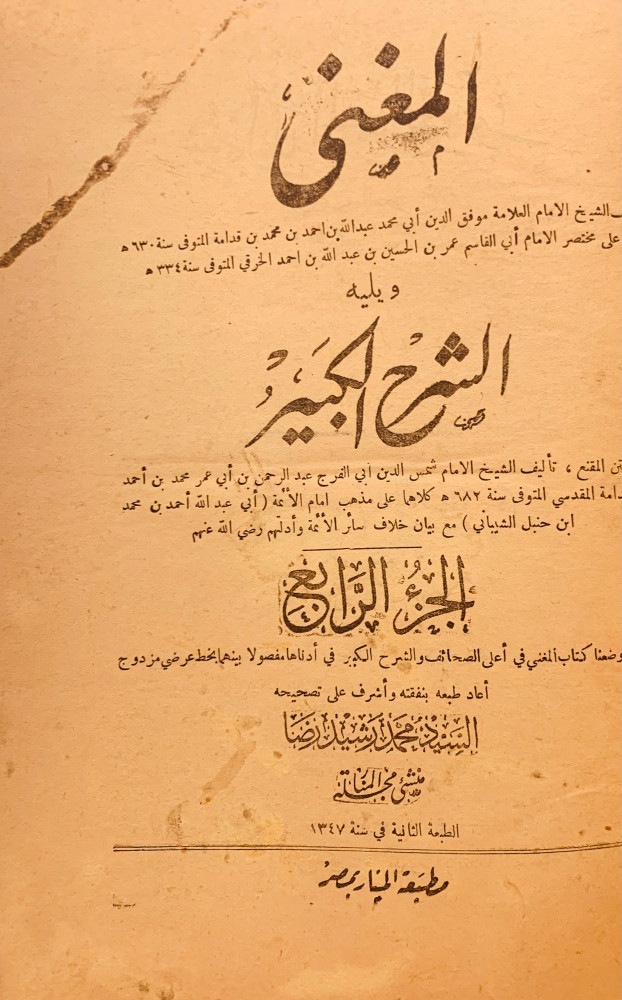 المغنى
الشيخ الامام العلامة موفق الدين أبي محمد عبدالله بن احمد بن محمد بن قدامة المتوفى سنة ٦٣٠ ه
على مختصر الامام أبي القاسم عمر بن الحسين بن عبد الله بن احمد الخرقي المتوفى سنة ٣٣٤ ه
ويليه
الشرح الكبير
المقنع ، تأليف الشيخ الامام شمس الدين ابي الفرج عبد الرحمن بن أبي عمر محمد بن أحمد
المقدسي المتوفى سنة ٦٨٢ ه كلاهما على مذهب امام الأئمة ( أبي عبد الله أحمد بن محمد
ابن حنبل الشيباني ) مع بيان خلاف سائر الأئمة وأدلتهم رضي الله عنهم
الجزء الرابع
٤
وضعنا كتاب المغني في أعلى الصحائف والشرح الكبير في أدناها مفصولا بينهما بخط عرضي مزدوج
أعاد طبعه بنفقته وأشرف على تصحيحه
السيد محمد رشيد رضا
منشئ مجلة المنار
الطبعة الثانية في سنة ١٣٤٧
مطبعة المنار بمصر